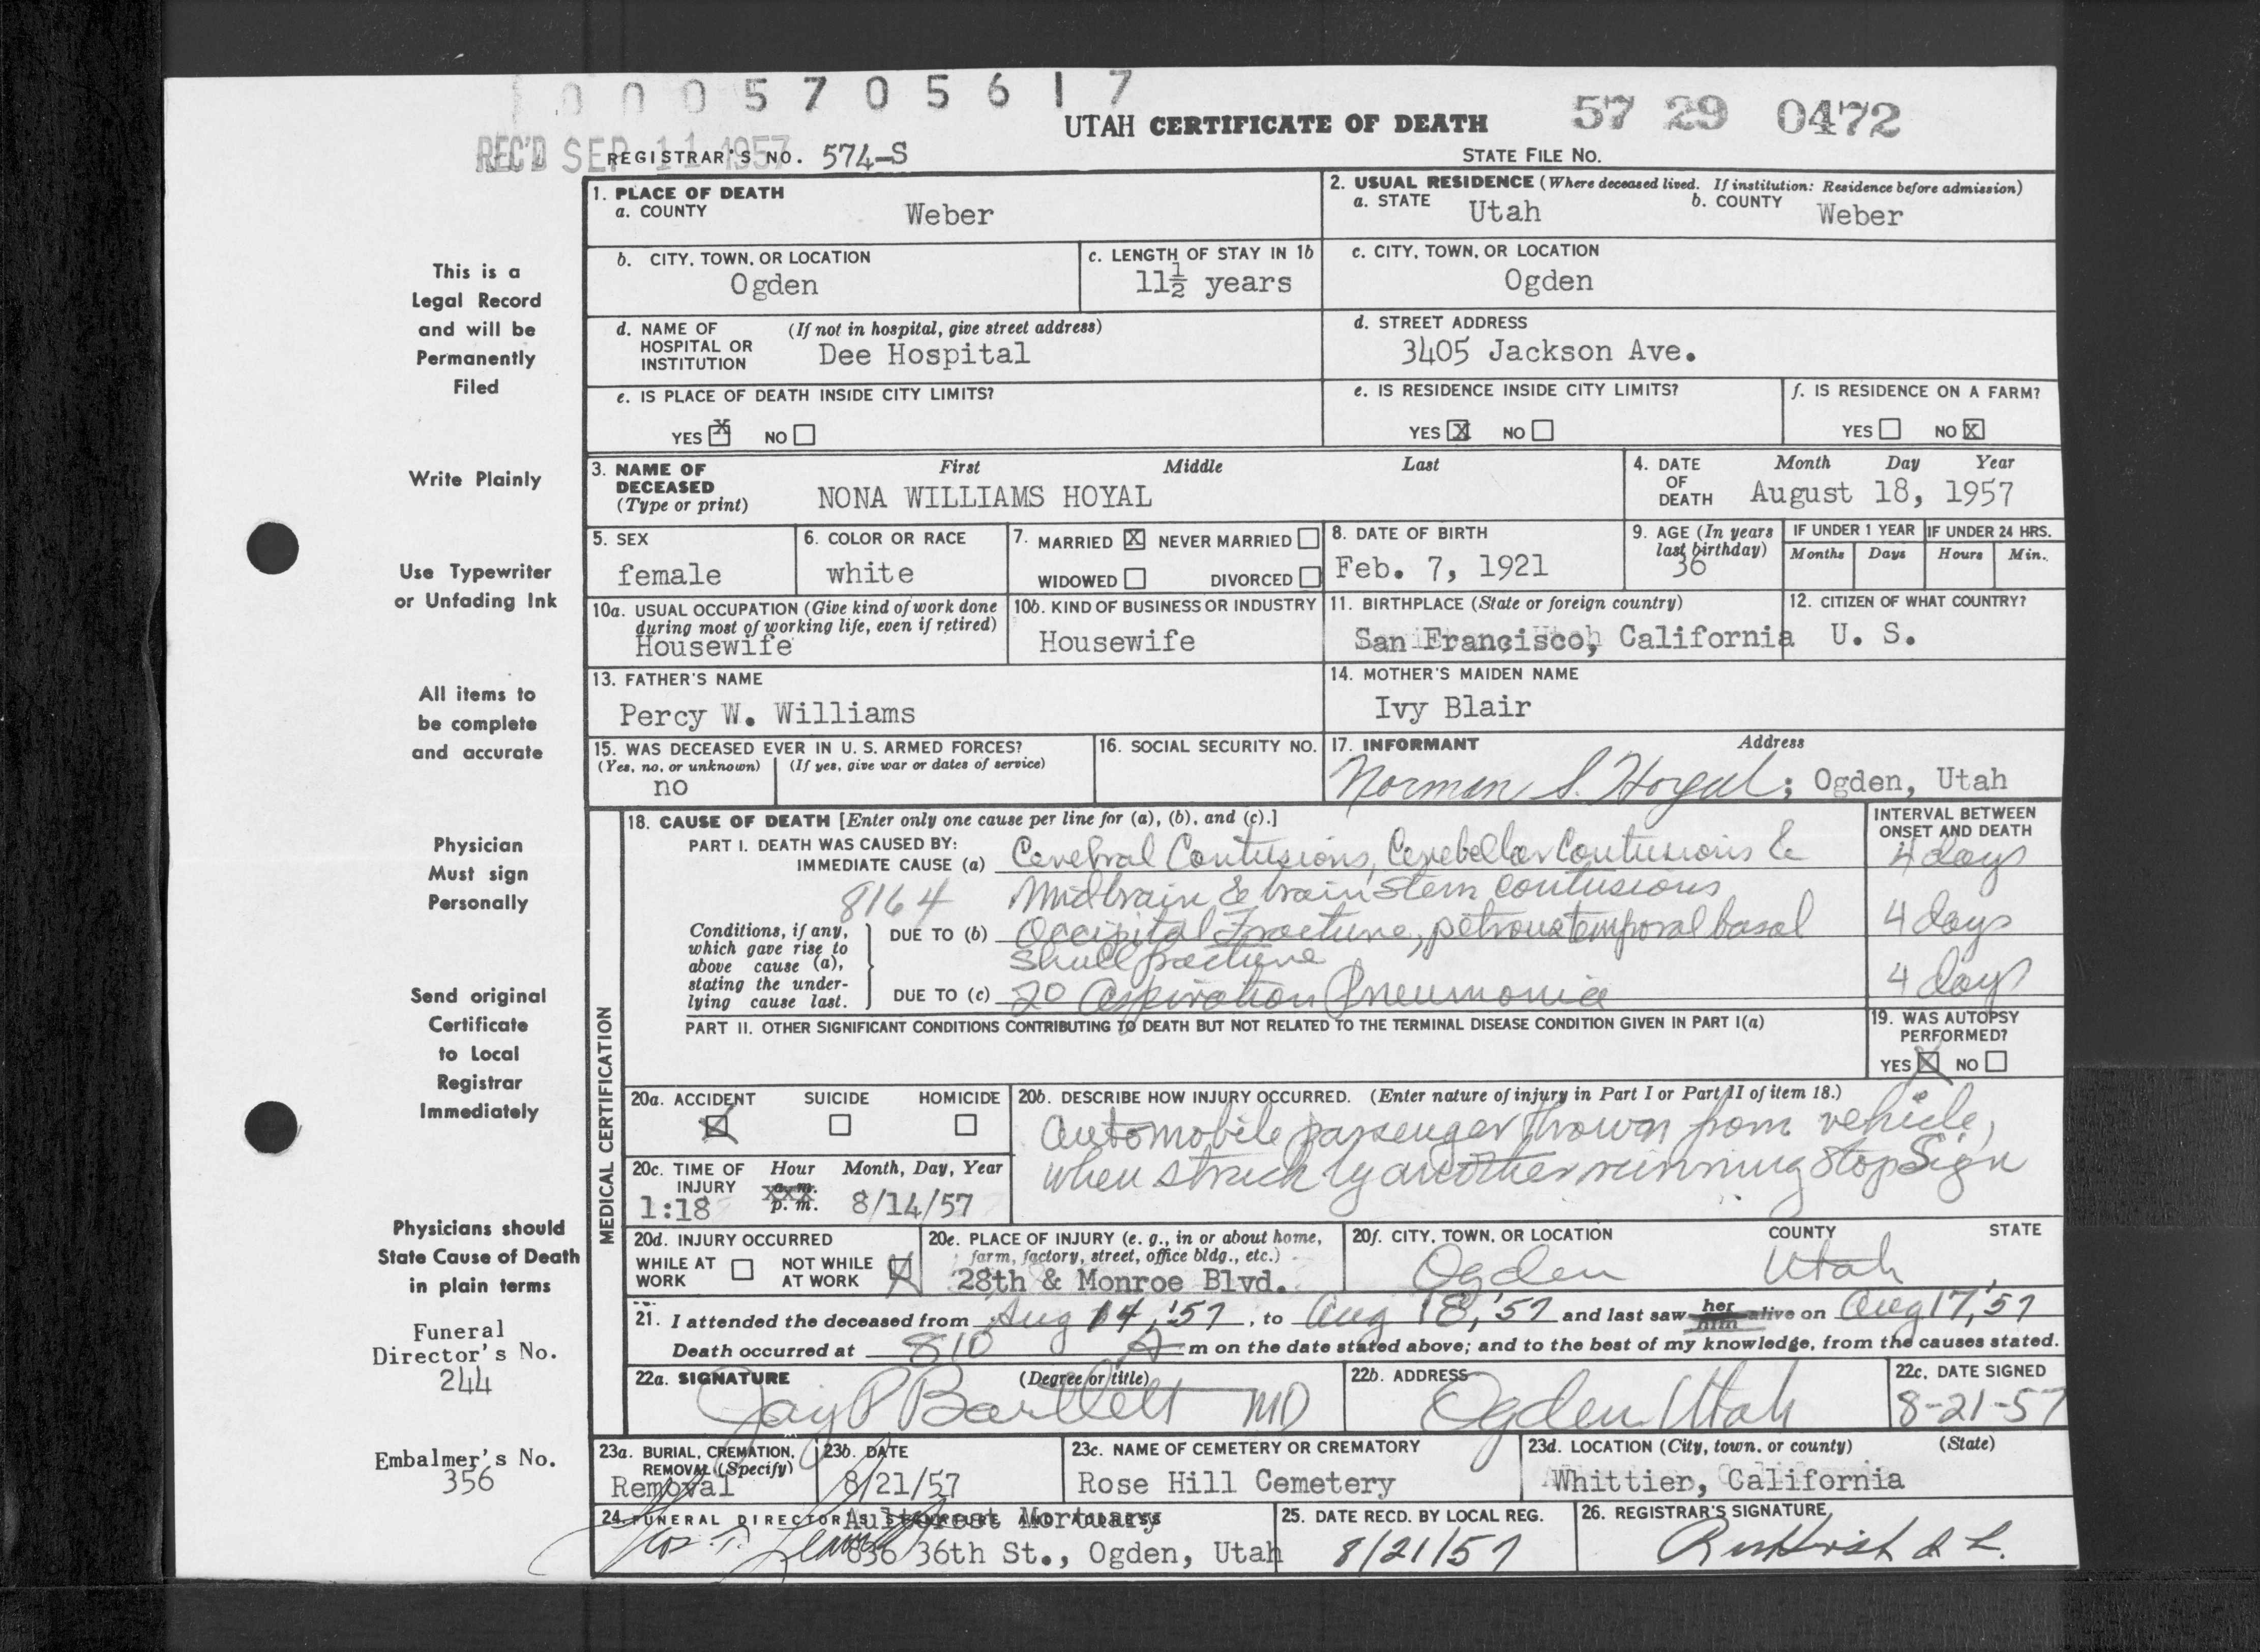 0 0 0 5 7 0 5 6 1 7
UTAH CERTIFICATE OF DEATH
57 29 0472
REC'D SEP 11 1957
REGISTRAR'S NO. 574-S
STATE FILE No.
1. PLACE OF DEATH
a. COUNTY
Weber
2. USUAL RESIDENCE (Where deceased lived. If institution: Residence before admission)
a. STATE Utah
b. COUNTY Weber
b. CITY, TOWN, OR LOCATION
Ogden
c. LENGTH OF STAY IN 1b
11½ years
c. CITY, TOWN, OR LOCATION
Ogden
d. NAME OF HOSPITAL OR INSTITUTION
(If not in hospital, give street address)
Dee Hospital
d. STREET ADDRESS
3405 Jackson Ave.
e. IS PLACE OF DEATH INSIDE CITY LIMITS?
YES X NO
e. IS RESIDENCE INSIDE CITY LIMITS?
YES X NO
f. IS RESIDENCE ON A FARM?
YES NO X
3. NAME OF DECEASED (Type or print)
First Middle Last
NONA WILLIAMS HOYAL
4. DATE OF DEATH
Month Day Year
August 18, 1957
5. SEX
female
6. COLOR OR RACE
white
7. MARRIED X NEVER MARRIED
WIDOWED DIVORCED
8. DATE OF BIRTH
Feb. 7, 1921
9. AGE (In years last birthday)
36
IF UNDER 1 YEAR
Months Days
IF UNDER 24 HRS.
Hours Min.
10a. USUAL OCCUPATION (Give kind of work done during most of working life, even if retired)
Housewife
10b. KIND OF BUSINESS OR INDUSTRY
Housewife
11. BIRTHPLACE (State or foreign country)
San Francisco, California
12. CITIZEN OF WHAT COUNTRY?
U. S.
13. FATHER'S NAME
Percy W. Williams
14. MOTHER'S MAIDEN NAME
Ivy Blair
15. WAS DECEASED EVER IN U. S. ARMED FORCES?
(Yes, no, or unknown) (If yes, give war or dates of service)
no
16. SOCIAL SECURITY NO.
17. INFORMANT Address
Norman S. Hoyal; Ogden, Utah
MEDICAL CERTIFICATION
18. CAUSE OF DEATH [Enter only one cause per line for (a), (b), and (c).]
INTERVAL BETWEEN ONSET AND DEATH
PART I. DEATH WAS CAUSED BY:
IMMEDIATE CAUSE (a) Cerebral Contusions, Cerebellar Contusions & 4 days
8164 Midbrain & brain Stem contusions
Conditions, if any, which gave rise to above cause (a), stating the underlying cause last.
DUE TO (b) Occipital Fracture, petrous temporal basal 4 days
skull fracture
DUE TO (c) 2° Aspiration Pneumonia 4 days
PART II. OTHER SIGNIFICANT CONDITIONS CONTRIBUTING TO DEATH BUT NOT RELATED TO THE TERMINAL DISEASE CONDITION GIVEN IN PART I(a)
19. WAS AUTOPSY PERFORMED?
YES X NO
20a. ACCIDENT X SUICIDE HOMICIDE
20b. DESCRIBE HOW INJURY OCCURRED. (Enter nature of injury in Part I or Part II of item 18.)
Automobile passenger thrown from vehicle,
when struck by another running Stop Sign
20c. TIME OF INJURY
Hour Month, Day, Year
1:18 p. m. 8/14/57
20d. INJURY OCCURRED
WHILE AT WORK NOT WHILE AT WORK X
20e. PLACE OF INJURY (e. g., in or about home, farm, factory, street, office bldg., etc.)
28th & Monroe Blvd.
20f. CITY, TOWN, OR LOCATION COUNTY STATE
Ogden Utah
21. I attended the deceased from Aug 14, '57, to Aug 18, '57 and last saw her alive on Aug 17, '57
Death occurred at 810 A m on the date stated above; and to the best of my knowledge, from the causes stated.
22a. SIGNATURE (Degree or title)
Jay P Bartlett MD
22b. ADDRESS
Ogden Utah
22c. DATE SIGNED
8-21-57
23a. BURIAL, CREMATION, REMOVAL (Specify)
Removal
23b. DATE
8/21/57
23c. NAME OF CEMETERY OR CREMATORY
Rose Hill Cemetery
23d. LOCATION (City, town, or county) (State)
Whittier, California
24. FUNERAL DIRECTOR'S SIGNATURE AND ADDRESS
Aultorest Mortuary
836 36th St., Ogden, Utah
25. DATE RECD. BY LOCAL REG.
8/21/57
26. REGISTRAR'S SIGNATURE
This is a
Legal Record
and will be
Permanently
Filed
Write Plainly
Use Typewriter
or Unfading Ink
All items to
be complete
and accurate
Physician
Must sign
Personally
Send original
Certificate
to Local
Registrar
Immediately
Physicians should
State Cause of Death
in plain terms
Funeral
Director's No.
244
Embalmer's No.
356